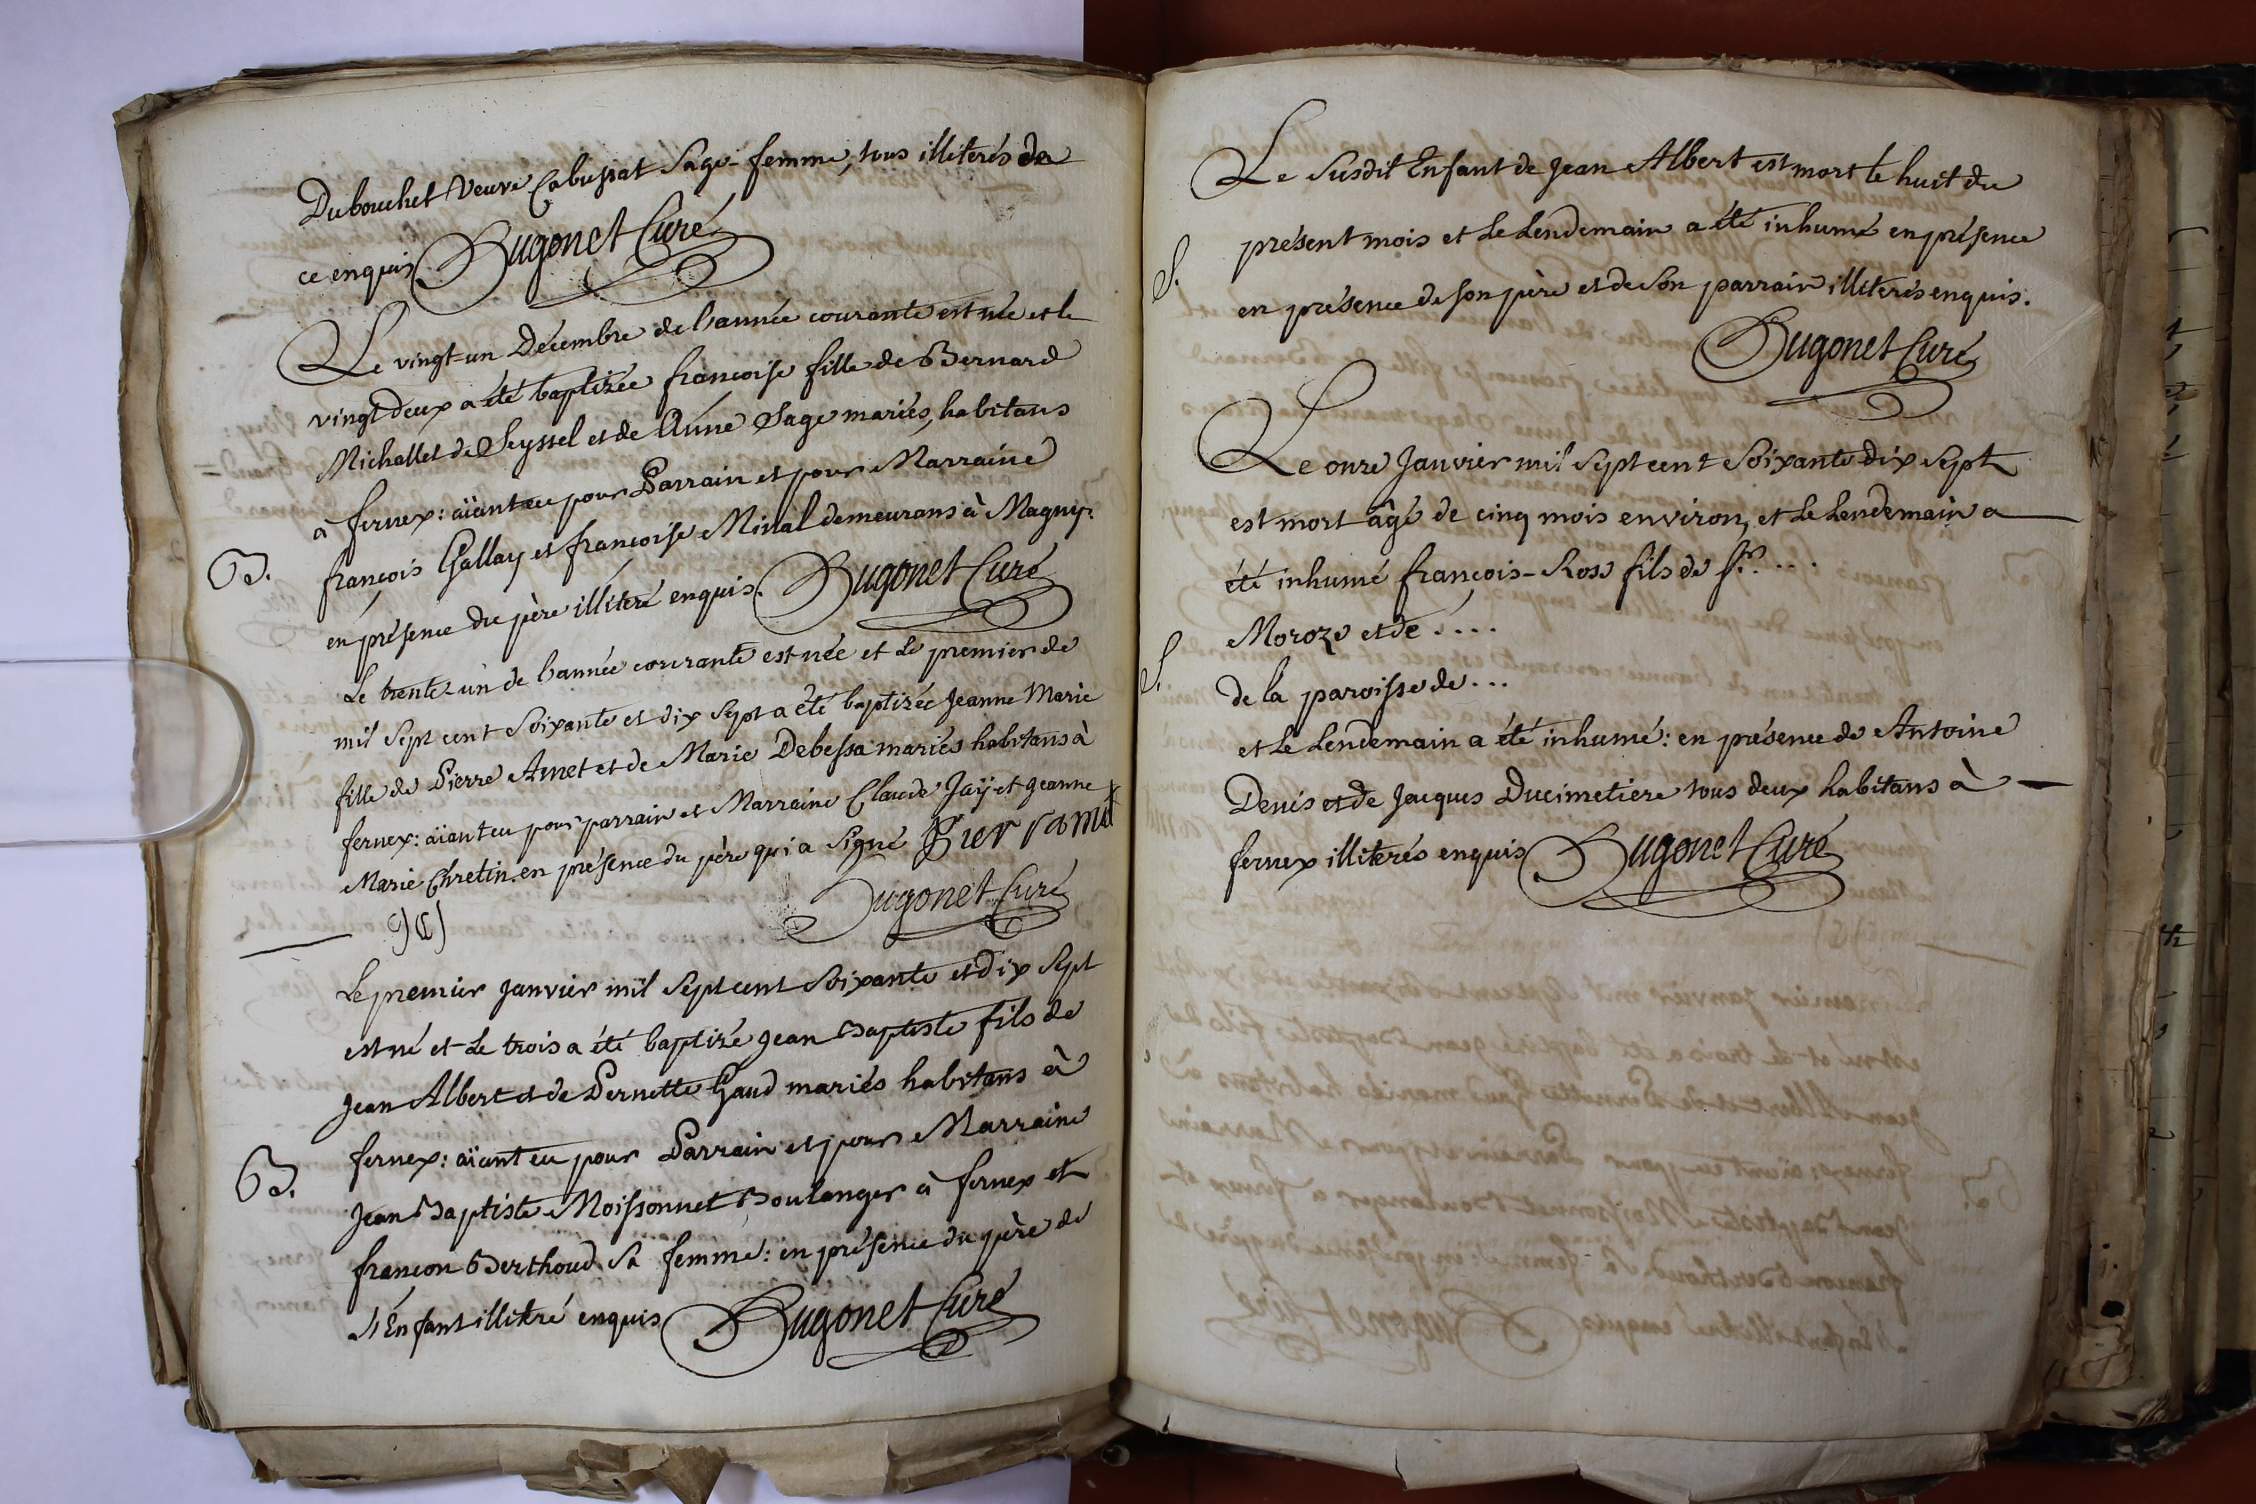 Dubouchet veuve Cabusiat Sage-femme, tous illiterés de
ce enquis Hugonet Curé
Le vingt-un Décembre de l'année courante est née et le
vingt deux a été baptizée françoise fille de Bernard
Michallet de Seyssel et de Anne Sage mariés, habitans
à fernex: aïant eu pour Parrain et pour Marraine
françois Gallay et françoise Minal demeurans à Magny:
B.
en présence du père illiteré enquis. Hugonet Curé
Le trente-un de l'année courante est née et le premier de
mil sept cent soixante et dix sept a été baptizée Jeanne Marie
fille de Pierre Amet et de Marie Debessa mariés habitans à
fernex: aïant eu pour parrain et Marraine Claude Jaÿ et Jeanne
Marie Chretin. en présence du père qui a signé
Hugonet Curé
Le premier Janvier mil sept cent soixante et dix sept
est né et le trois a été baptizé Jean Baptiste fils de
Jean Albert et de Pernette Gaud mariés habitans à
fernex: aïant eu pour Parrain et pour Marraine
B.
Jean Baptiste Moissonnet Boulanger à fernex et
françon Berthoud sa femme: en présence du père de
l'Enfant illitré enquis Hugonet Curé
Le susdit Enfant de Jean Albert est mort le huit du
S.
présent mois et le lendemain a été inhumé en présence
en présence de son père et de son parrain illiterés enquis.
Hugonet Curé
Le onze Janvier mil sept cent soixante dix sept
est mort âgé de cinq mois environ, et le lendemain a
été inhumé françois-Ross fils de Sr. ...
Moroze et de ....
S.
de la paroisse de ...
et le lendemain a été inhumé: en présence de Antoine
Denis et de Jacques Ducimetiere tous deux habitans à
fernex illiterés enquis Hugonet Curé